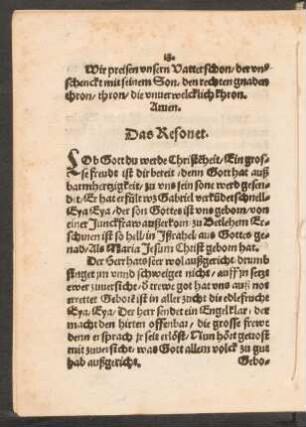 18.
Wir preisen vnsern Vatter schon/ der vns
schenckt mit seinem Son/ den rechten gnaden
thron/ thron/ die vnuerwelcklich khron.
Amen.
Das Resonet.
LOb Gott du werde Christēheit/ Ein gros-
se freudt ist dir bereit/ denn Gott hat auß
barmhertzigkeit/ zu vns sein sone werd gesen-
det/ Er hat erfült wz Gabriel verkündet schnell/
Eya Eya/ der son Gottes ist vns geborn/ von
einer Junckfraw auszerkorn zu Betlehem Er-
schinen ist so hell/ in Jsrahel aus Gottes ge-
nad/ Als Maria Jesum Christ geborn hat.
Der Herr hats seer wol außgericht/ drumb
singet jm vnnd schweiget nicht/ auff jn setzt
ewer zuuersicht/ ð trewe got hat vns auß not
errettet Geborē ist in aller zucht die edle frucht
Eya/ Eya/ Der herr sendet ein Engel klar/ der
macht den hirten offenbar/ die grosse frewt
denn er sprach jr seit erlöst/ Nun hört getrost
mit zuuersicht/ was Gott allem volck zu gut
hab außgericht.
Gebo-